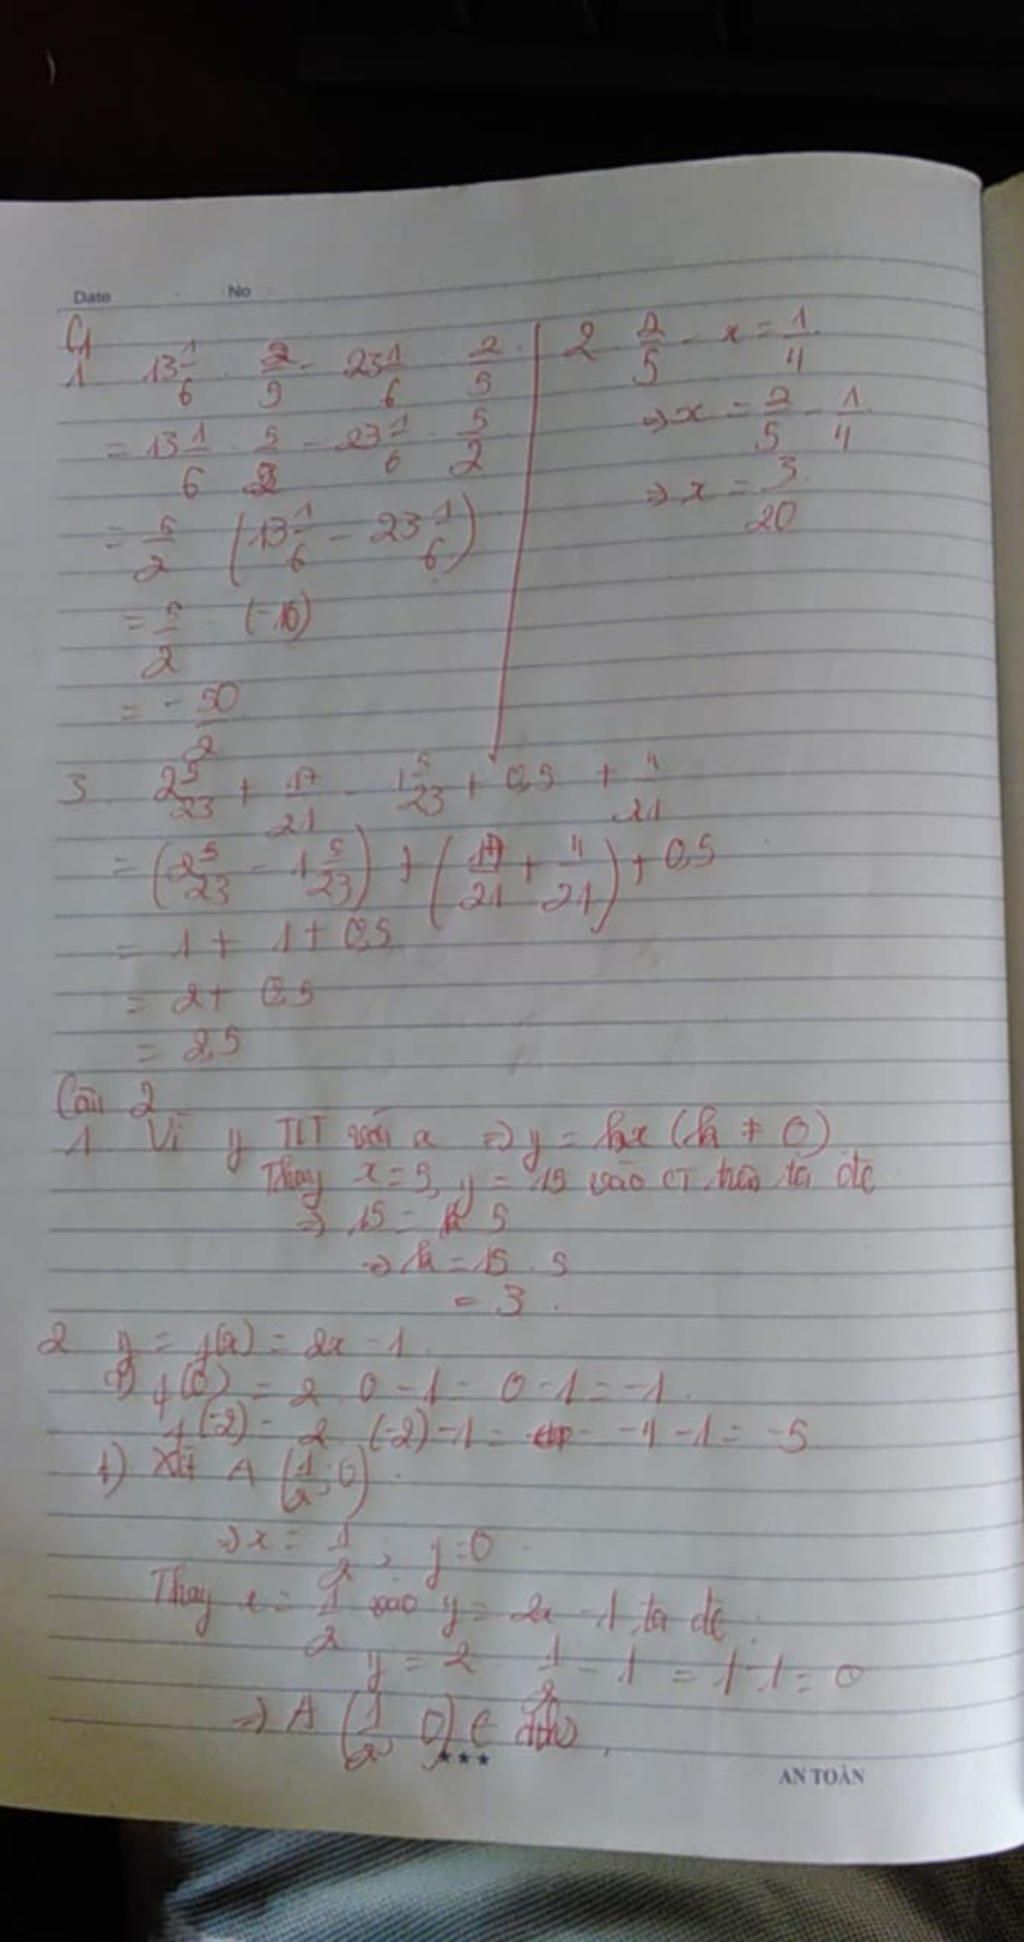 Date No
C1
1. 13 1/6 : 2/5 - 23 1/6 : 2/5
= 13 1/6 . 5/2 - 23 1/6 . 5/2
= 5/2 (13 1/6 - 23 1/6)
= 5/2 . (-10)
= -50/2
2 2/5 - x = 1/4
⇒ x = 2/5 - 1/4
⇒ x = 3/20
3. 2 5/23 + 17/21 - 1 5/23 + 0,5 + 4/21
= (2 5/23 - 1 5/23) + (17/21 + 4/21) + 0,5
= 1 + 1 + 0,5
= 2 + 0,5
= 2,5
Câu 2
1. Vì y TLT với x ⇒ y = kx (k ≠ 0)
Thay x = 5, y = 15 vào CT trên ta đc
⇒ 15 = k 5
⇒ k = 15 : 5
= 3 .
2 y = f(x) = 2x - 1
f(0) = 2 . 0 - 1 = 0 - 1 = -1 .
f(-2) = 2 (-2) - 1 = -4 - 1 = -5
Xét A (1/2; 0)
⇒ x = 1/2 ; y = 0
Thay x = 1/2 vào y = 2x - 1, ta đc
y = 2 1/2 - 1 = 1 - 1 = 0
⇒ A (1/2; 0) ∈ đths
AN TOÀN